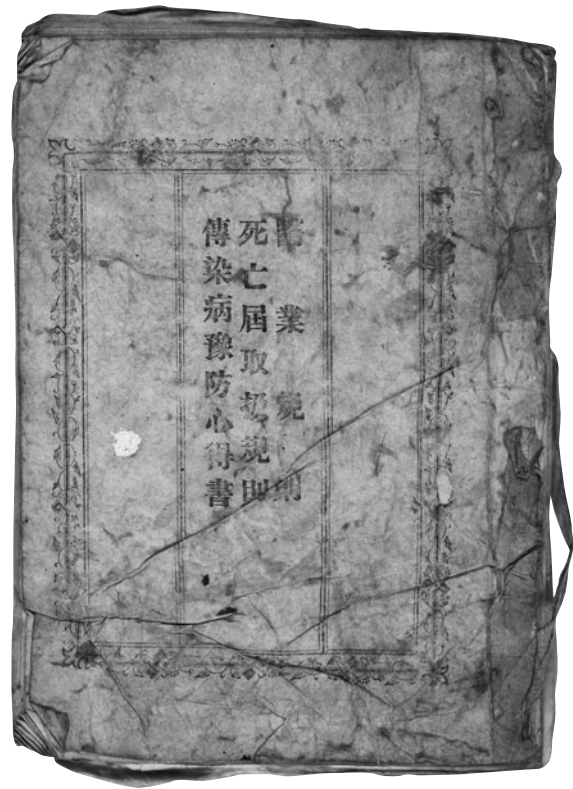 醫業規則
死亡屆取扱規則
傳染病豫防心得書